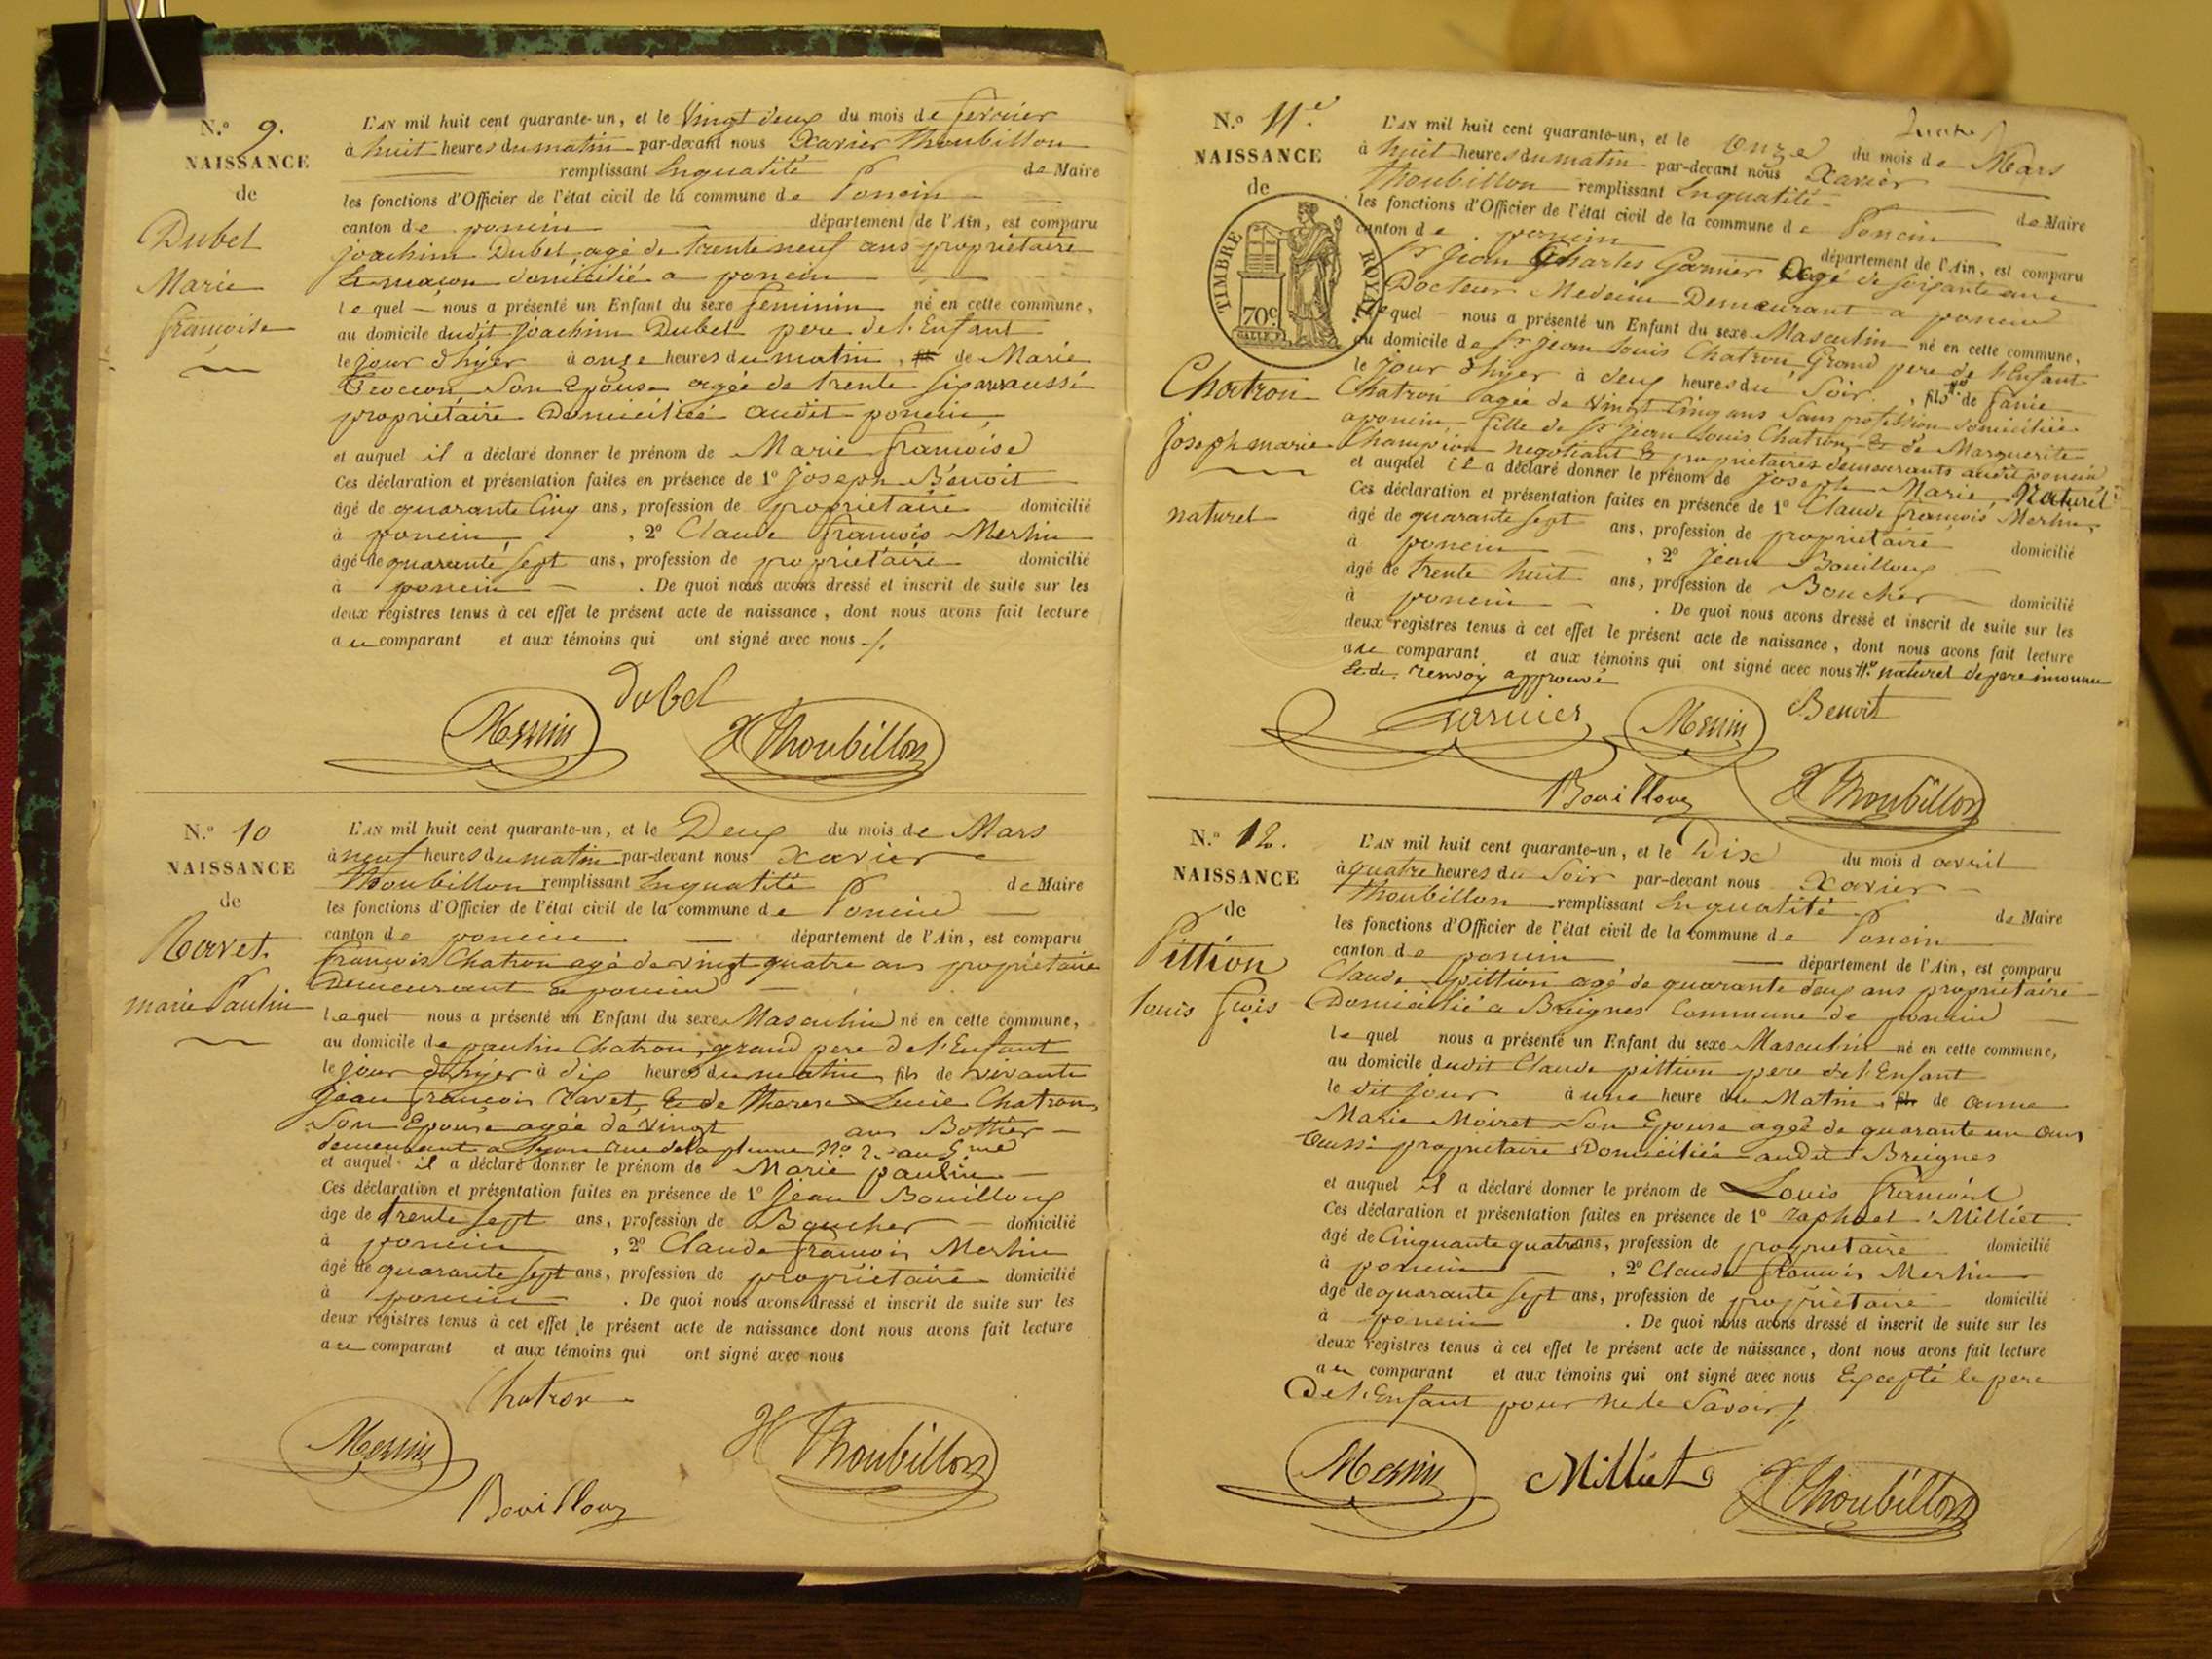 N.º 9.
NAISSANCE
de
Dubet
Marie
françoise
L'AN mil huit cent quarante-un, et le Vingt deux du mois de fevrier
à huit heures du matin par-devant nous Xavier Thoubillon
remplissant Enqualité de Maire
les fonctions d'Officier de l'état civil de la commune de Poncin
canton de poncin département de l'Ain, est comparu
joachim Dubet agé de trente neuf ans propriétaire
& maçon domicilié a poncin
lequel nous a présenté un Enfant du sexe feminin né en cette commune,
au domicile dudit joachim Dubet pere de l'Enfant
le jour d'hyer à onze heures du matin, de Marie
son Epouse agée de trente six ans aussi
propriétaire Domiciliée audit poncin
et auquel il a déclaré donner le prénom de Marie françoise
Ces déclaration et présentation faites en présence de 1º joseph Benoit
âgé de quarante Cinq ans, profession de propriétaire domicilié
à poncin, 2º Claude françois Merlin
âgé de quarante sept ans, profession de propriétaire domicilié
à poncin . De quoi nous avons dressé et inscrit de suite sur les
deux registres tenus à cet effet le présent acte de naissance, dont nous avons fait lecture
au comparant et aux témoins qui ont signé avec nous ./.
Dubet
Merlin X Thoubillon
N.º 10
NAISSANCE
de
Ravet
marie Paulin
L'AN mil huit cent quarante-un, et le Deux du mois de Mars
à neuf heures du matin par-devant nous Xavier
Thoubillon remplissant Enqualité de Maire
les fonctions d'Officier de l'état civil de la commune de Poncin
canton de poncin département de l'Ain, est comparu
françois Chatron agé de vingt quatre ans propriétaire
Demeurant a poncin
lequel nous a présenté un Enfant du sexe Masculin né en cette commune,
au domicile de paulin Chatron, grand pere de l'Enfant
le jour d'hyer à dix heures du matin fils de
jean françois Ravet, & de therese Lucie Chatron
Son Epouse agée de vingt ans Bottier
demeurant a lyon rue de la plume Nº 2. au 5me
et auquel il a déclaré donner le prénom de Marie paulin
Ces déclaration et présentation faites en présence de 1º jean Bouilloux
âgé de trente sept ans, profession de Boucher domicilié
à poncin, 2º Claude françois Merlin
âgé de quarante sept ans, profession de propriétaire domicilié
à poncin . De quoi nous avons dressé et inscrit de suite sur les
deux registres tenus à cet effet le présent acte de naissance dont nous avons fait lecture
au comparant et aux témoins qui ont signé avec nous
Chatron
Merlin X Thoubillon
Bouilloux
N.º 11e.
NAISSANCE
de
TIMBRE ROYAL
70c
Chatron
joseph marie
naturel
L'AN mil huit cent quarante-un, et le Onze du mois de Mars
à huit heures du matin par-devant nous Xavier
Thoubillon remplissant Enqualité de Maire
les fonctions d'Officier de l'état civil de la commune de Poncin
canton de poncin département de l'Ain, est comparu
Sr jean Charles Garnier Agé de soixante ans
Docteur Medecin Demeurant a poncin
lequel nous a présenté un Enfant du sexe Masculin né en cette commune,
au domicile de Sr jean Louis Chatron Grand pere de l'Enfant
le jour d'hyer à deux heures du Soir, fils de fanie
Chatron agée de vingt Cinq ans Sans profession domiciliée
a poncin fille de Sr jean Louis Chatron, & de Marguerite
Champion negotiant & propriétaires demeurants audit poncin
et auquel il a déclaré donner le prénom de joseph Marie, Naturel
Ces déclaration et présentation faites en présence de 1º Claude françois Merlin
âgé de quarante sept ans, profession de propriétaire domicilié
à poncin, 2º jean Bouilloux
âgé de trente huit ans, profession de Boucher domicilié
à poncin . De quoi nous avons dressé et inscrit de suite sur les
deux registres tenus à cet effet le présent acte de naissance, dont nous avons fait lecture
au comparant et aux témoins qui ont signé avec nous naturel de pere inconnu
renvoy approuvé
Garnier Merlin Benoit
Bouilloux X Thoubillon
N.º 12.
NAISSANCE
de
Pittion
louis fçois
L'AN mil huit cent quarante-un, et le Dix du mois d avril
à quatre heures du Soir par-devant nous Xavier
Thoubillon remplissant Enqualité de Maire
les fonctions d'Officier de l'état civil de la commune de Poncin
canton de poncin département de l'Ain, est comparu
Claude pittion agé de quarante deux ans propriétaire
Domicilié a Breignes Commune de poncin
lequel nous a présenté un Enfant du sexe Masculin né en cette commune,
au domicile dudit Claude pittion pere de l'Enfant
le dit jour à une heure du Matin, de anne
Marie Moiret Son Epouse agée de quarante un ans
aussi propriétaire Domiciliée audit Breignes
et auquel il a déclaré donner le prénom de Louis françois
Ces déclaration et présentation faites en présence de 1º raphael Milliet
âgé de Cinquante quatre ans, profession de propriétaire domicilié
à poncin, 2º Claude françois Merlin
âgé de quarante sept ans, profession de propriétaire domicilié
à poncin . De quoi nous avons dressé et inscrit de suite sur les
deux registres tenus à cet effet le présent acte de naissance, dont nous avons fait lecture
au comparant et aux témoins qui ont signé avec nous Excepté le pere
De l'Enfant pour ne le Savoir ./.
Merlin Milliet X Thoubillon